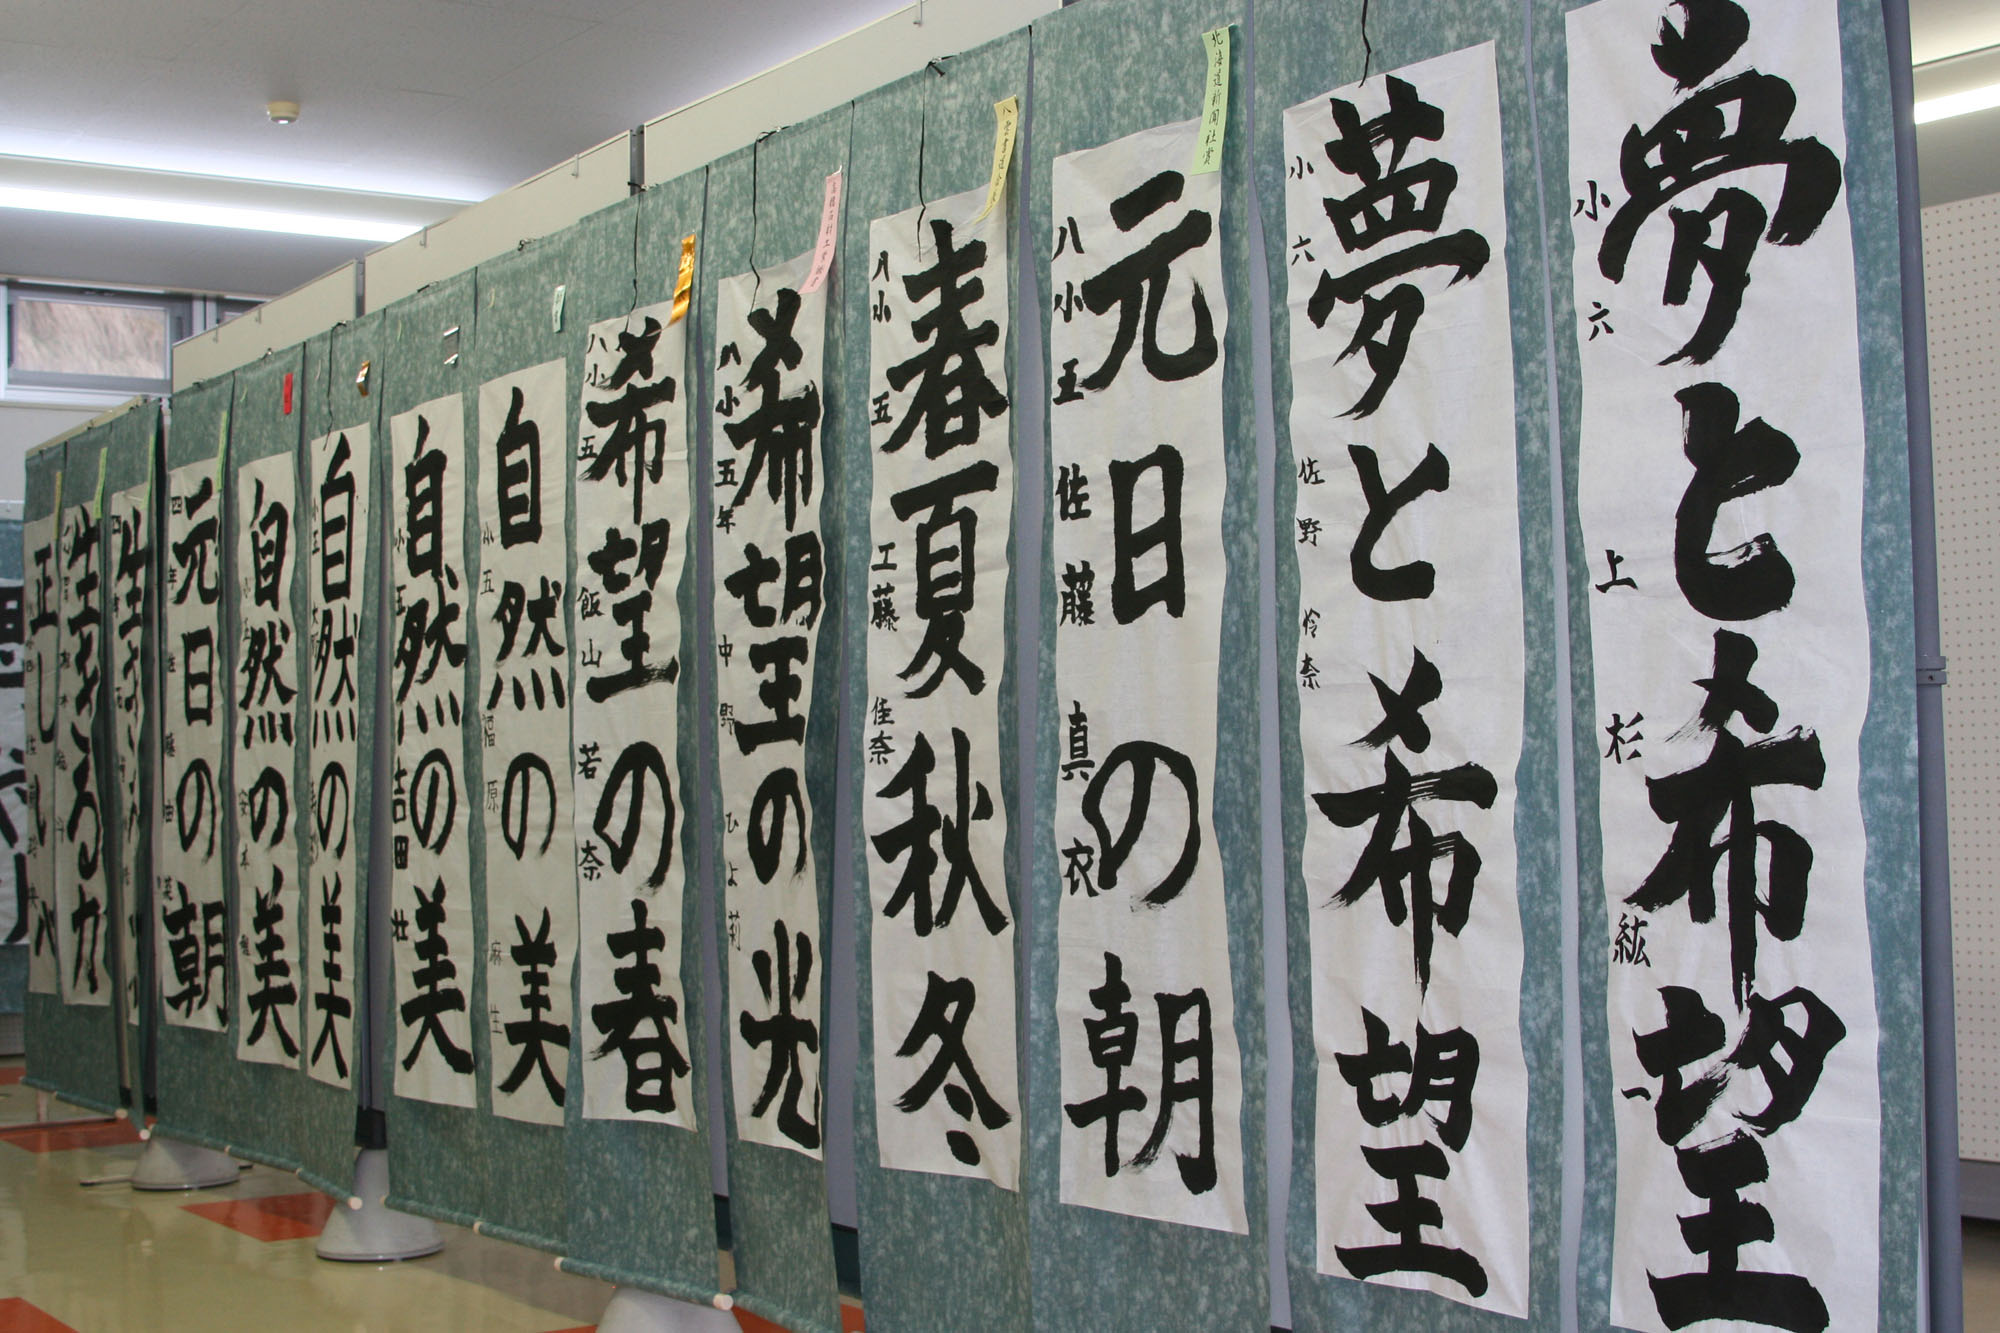 夢と希望
小六 上杉 紘一
夢と希望
小六 佐野 怜奈
北海道新聞社賞
元日の朝
八小五 佐藤 真衣
春夏秋冬
八小五 工藤 佳奈
希望の光
八小五年 中野 ひより
希望の春
八小五 飯山 若奈
自然の美
小五 福原 麻生
自然の美
小五 吉田 壮
自然の美
小五
自然の美
小五 安本
元日の朝
四年 佐藤 由菜
生
四年
生きる力
正しい